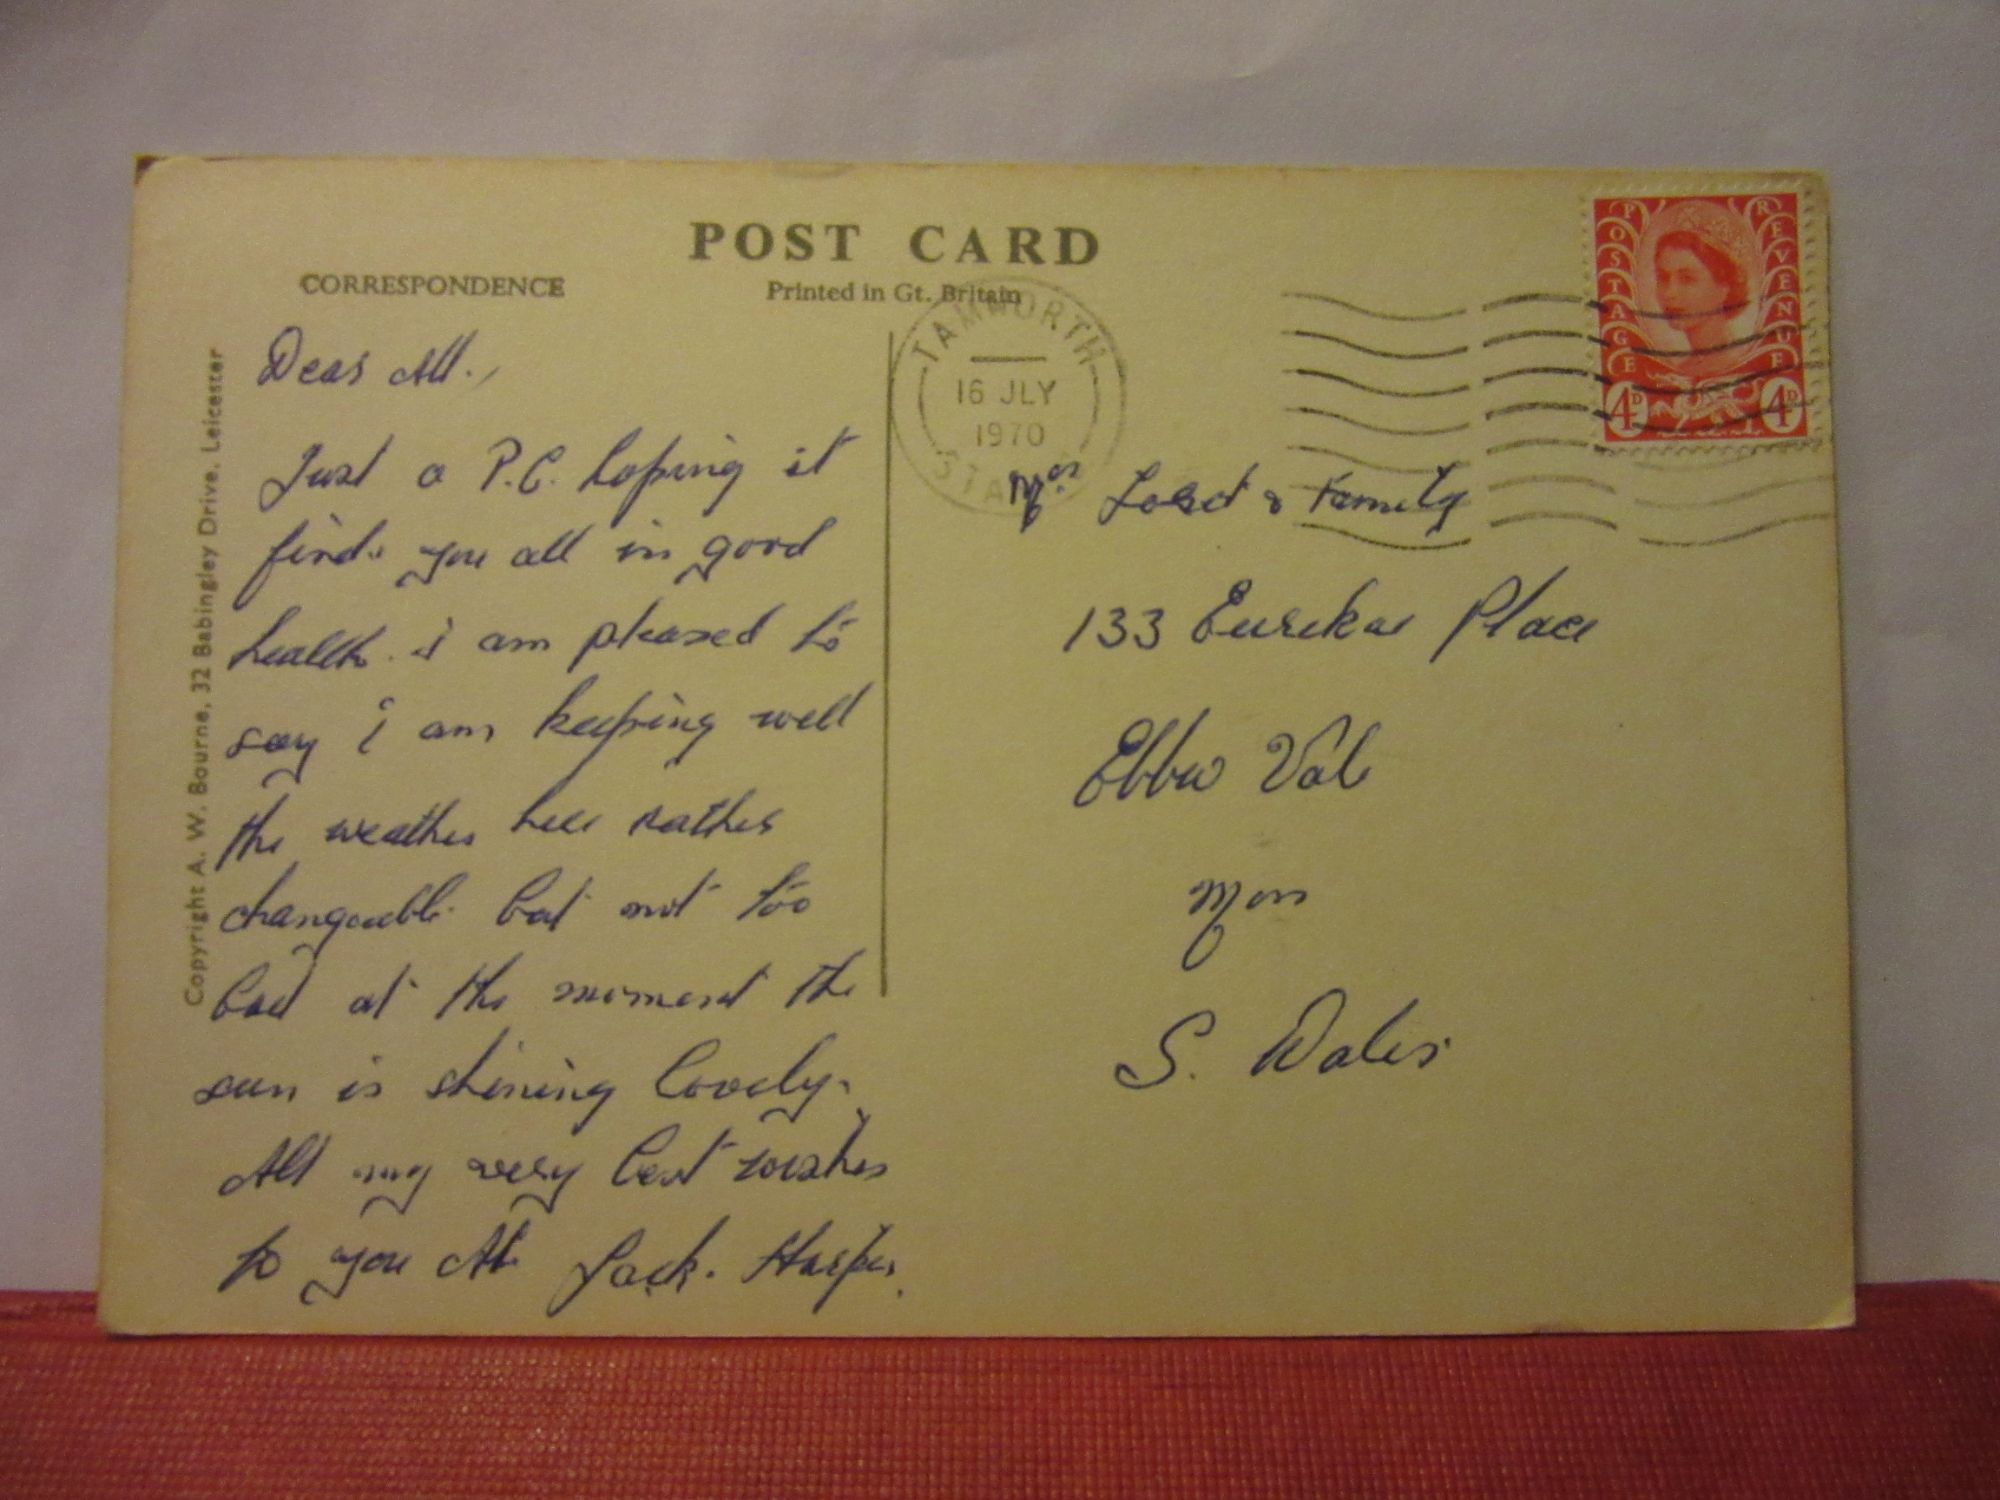 POST CARD
CORRESPONDENCE
Printed in Gt. Britain
Copyright A. W. Bourne, 32 Babingley Drive, Leicester
Dear All.,
Just a P.C. hoping it
finds you all in good
health. i am pleased to
say i am keeping well
the weather here rather
changeable but not too
bad at the moment the
sun is shining lovely.
All my very best wishes
to you All. Jack. Harper.
TAMWORTH
16 JLY
1970
STAFFS
POSTAGE REVENUE
4D 4D
Mrs & Family
133 Eureka Place
Ebbw Vale
Mon
S. Wales